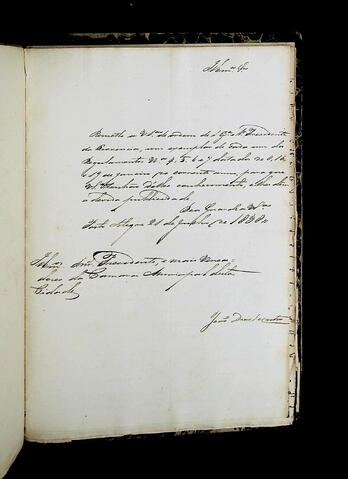 Illmos Snrs
Remetto a VSas de ordem do Exmo Snr Presidente
da Provincia, um exemplar de cada um dos
Regulamentos Nos 4, 5, 6 e 7 datados de
de Janeiro do corrente anno, para que
VSas tenhão delles conhecimento, e lhes dem
a devida publicidade.
Deos Guarde a VSas
Porto Alegre 21 de 1838
Illmos Snrs Presidente, e mais Verea-
dores da Camara Municipal desta
Cidade
João Dias de Castro